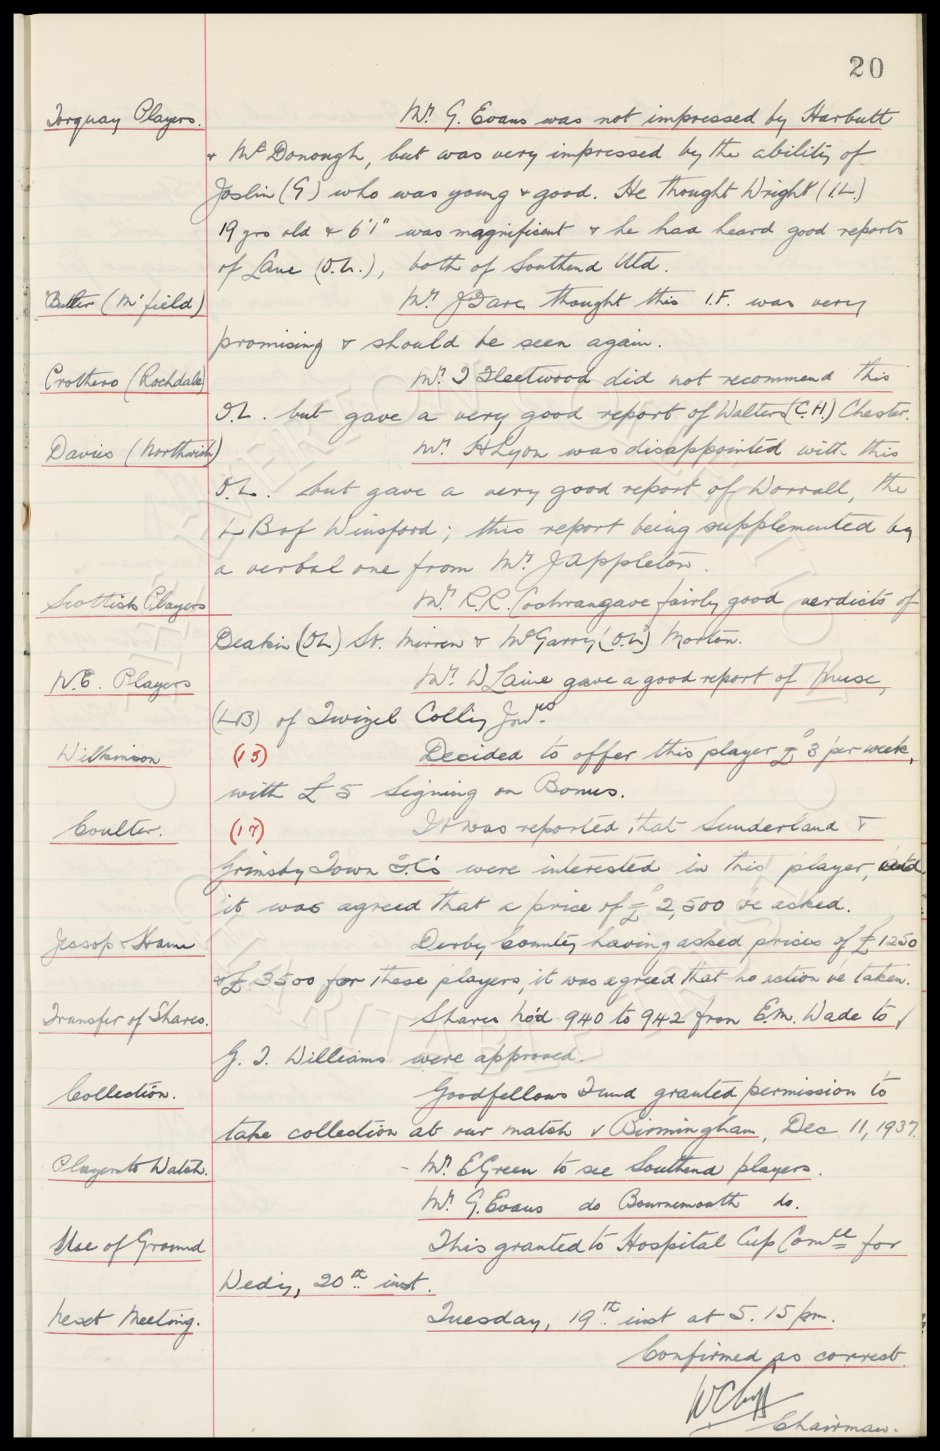 20
Torquay Players. Mr. G. Evans was not impressed by Harbutt
& McDonough, but was very impressed by the ability of
Joslin (G) who was young & good. He thought Wright (I.L.)
19 yrs old & 6'1" was magnificent & he had heard good reports
of Lane (O.L.), both of Southend Utd.
Butler (M'field) Mr. J Fare thought this I.F. was very
promising & should be seen again.
Crothers (Rochdale) Mr. T Fleetwood did not recommend this
O.L. but gave a very good report of Walters (C.H.) Chester.
Davies (Northwich) Mr. H Lyon was disappointed with this
O.L. but gave a very good report of Worrall, the
L B of Winsford; this report being supplemented by
a verbal one from Mr. J Appleton.
Scottish Players Mr. R.R. Cochran gave fairly good verdicts of
Deakin (OL) St. Mirren & McGarry (O.L) Morton.
N.E. Players Mr. W Laine gave a good report of Muse,
(LB) of Twizel Colliy Jnrs.
Wilkinson (15) Decided to offer this player £3 per week,
with £5 Signing on Bonus.
Coulter. (17) It was reported that Sunderland &
Grimsby Town F.C's were interested in this player, and
it was agreed that a price of £2,500 be asked.
Jessop & Hann Derby County having asked prices of £1250
& £3500 for these players, it was agreed that no action be taken.
Transfer of Shares. Shares No'd 940 to 942 from E.M. Wade to
G. T. Williams were approved.
Collection. Goodfellows Fund granted permission to
take collection at our match v Birmingham, Dec 11, 1937.
Players to Watch. - Mr. E Green to see Southend players.
Mr. G. Evans do Bournemouth do.
Use of Ground This granted to Hospital Cup Comtee for
Wedy, 20th inst.
Next Meeting. Tuesday, 19th inst at 5.15 pm.
Confirmed as correct.
W C Cuff
Chairman.